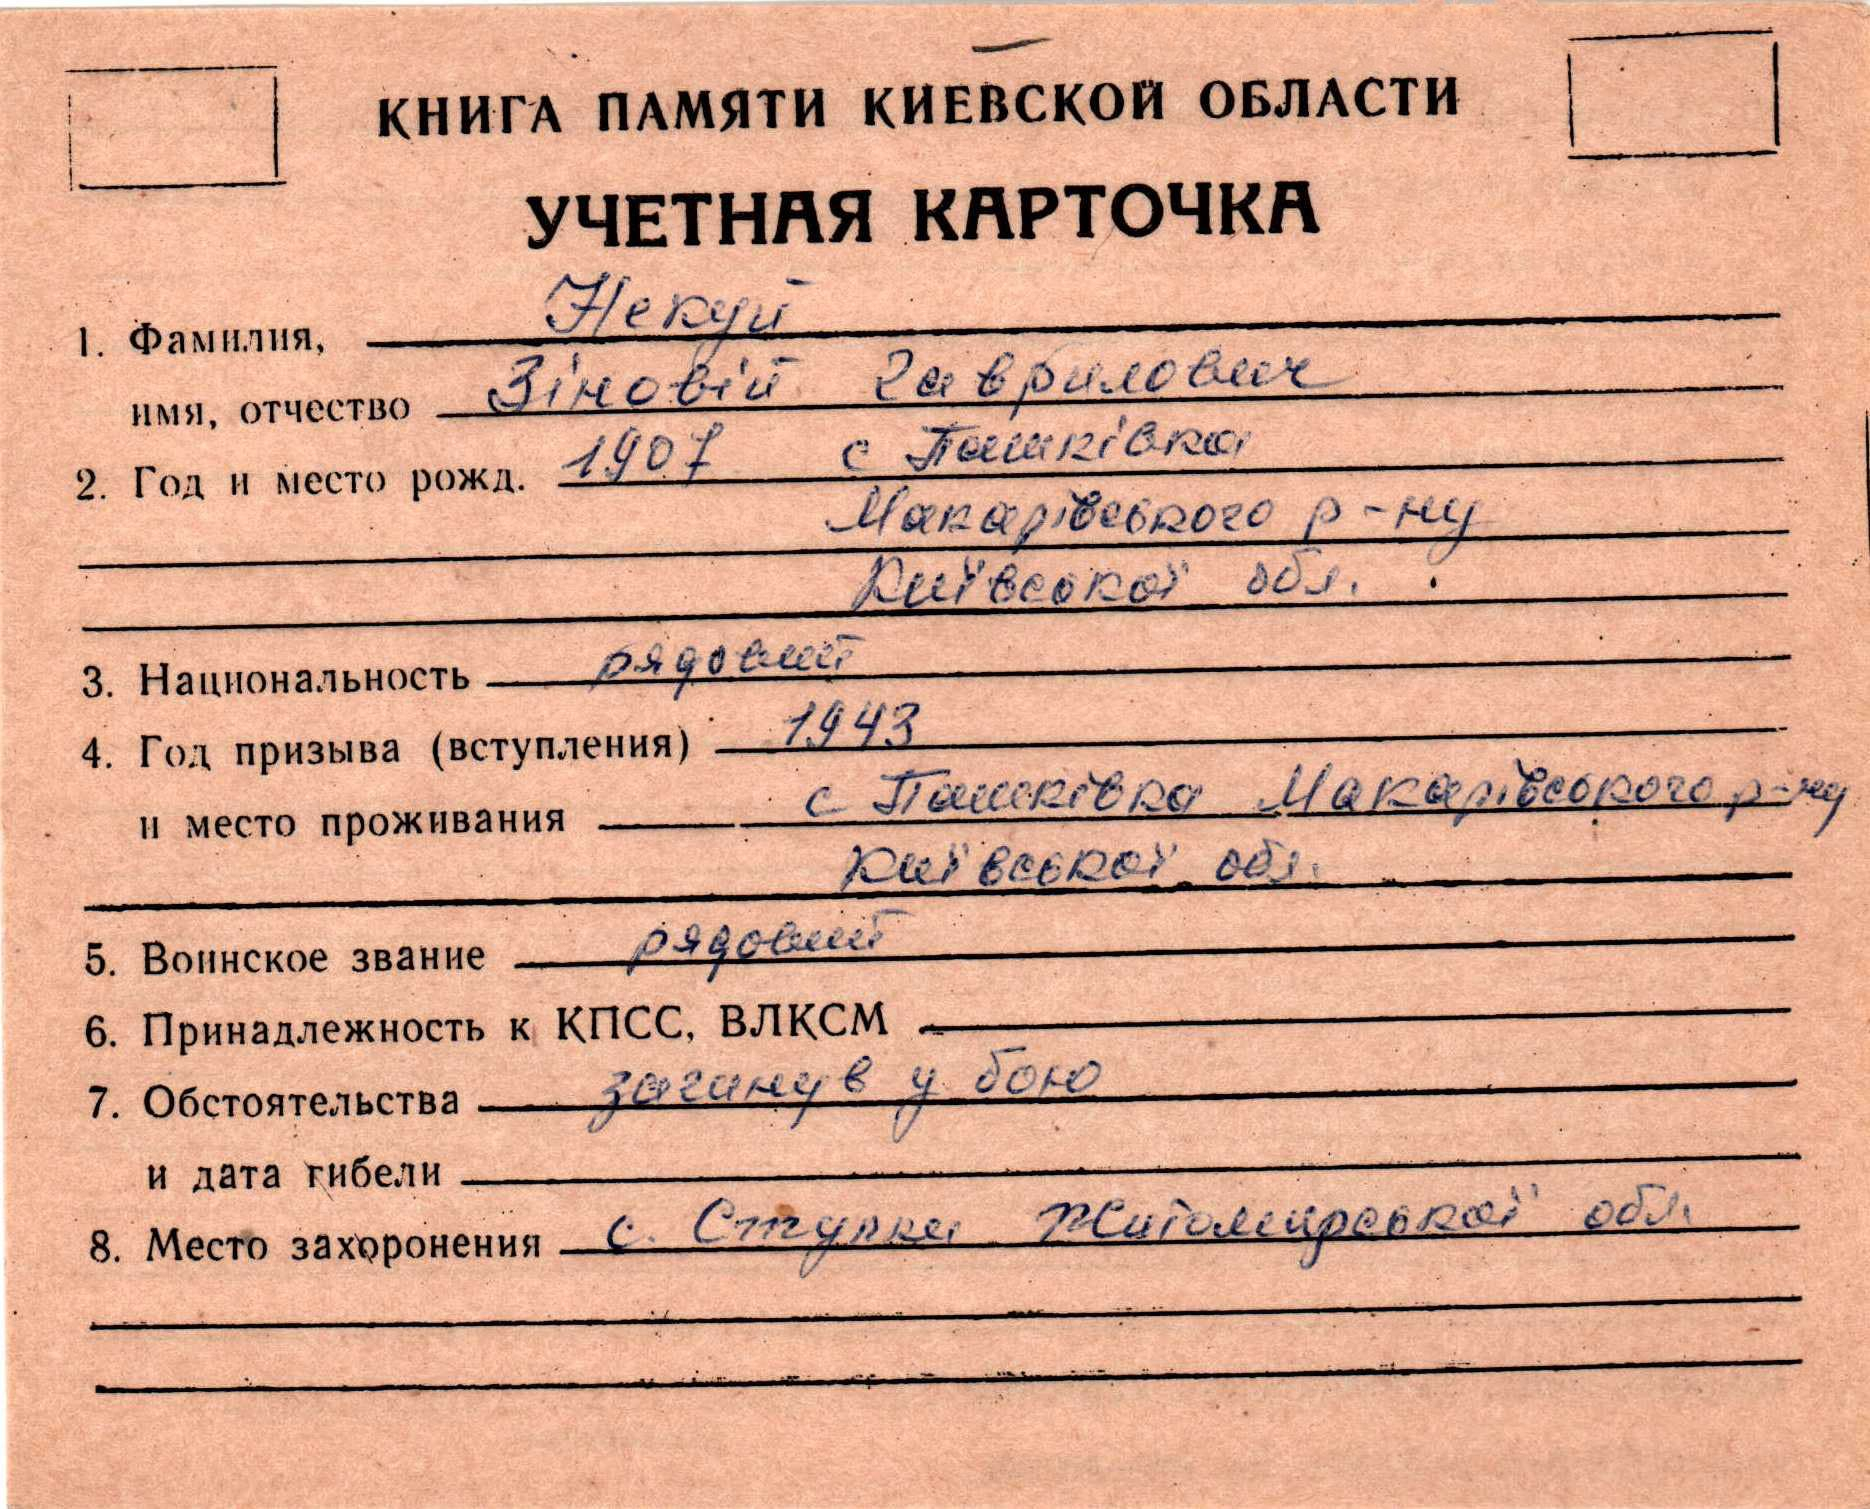 КНИГА ПАМЯТИ КИЕВСКОЙ ОБЛАСТИ
УЧЕТНАЯ КАРТОЧКА
1. Фамилия, Некуй
имя, отчество Зіновій Гаврилович
2. Год и место рожд. 1907 с Пашківка
Макарівського р-ну
Київської обл.
3. Национальность рядовий
4. Год призыва (вступления) 1943
и место проживания с Пашківка Макарівського р-ну
Київської обл.
5. Воинское звание рядовий
6. Принадлежность к КПСС, ВЛКСМ
7. Обстоятельства загинув у бою
и дата гибели
8. Место захоронения с. Ступки Житомирської обл.